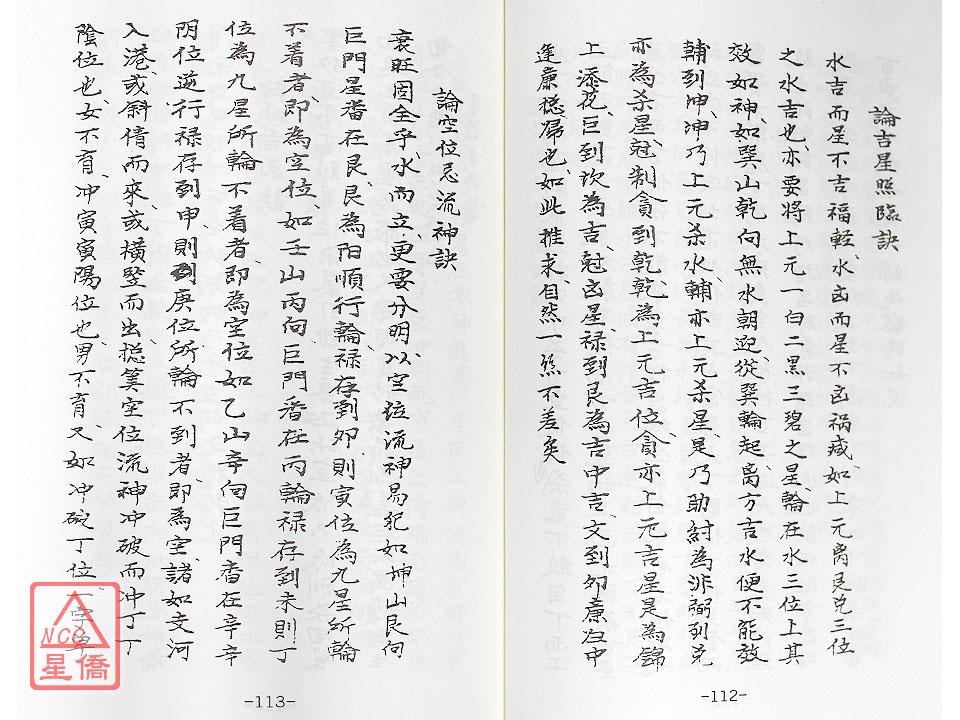 論吉星照臨訣
水吉而星不吉福輕、水凶而星不凶祸咸、如上元离艮兑三位
之水吉也、亦要將上元一白二黑三碧之星輪在水三位上其
效如神、如巽山乾向無水朝迎、從巽輪起、离方吉水便不能效
輔到坤、坤乃上元杀水、輔亦上元杀星、是乃助紂為非、弼到兑
亦為杀星、尅制貪到乾、乾為上元吉位、貪亦上元吉星是為錦
上添花、巨到坎為吉、尅凶星、禄到艮為吉中吉、文到夘廉归中
逢廉總歸也、如此推求、自然一絲不差矣
-112-
論空位忌流神訣
衰旺固全乎水而立、更要分明、以空位流神易犯如坤山艮向
巨門星畨在艮、艮為阳順行、輪禄存到夘、則寅位為九星所輪
不着者、即為空位、如壬山丙向巨門畨在丙輪禄存到未則丁
位為九星所輪不着者、即為空位如乙山辛向巨門畨在辛辛
阴位逆行禄存到申、則到庚位所輪不到者、即為空、諸如支河
入港、或斜倩而來、或橫竖而出、總筭空位流神冲破而冲丁丁
陰位也、女不育、冲寅寅陽位也、男不育、又如冲碇丁位、一字單
-113-
NCC
星僑